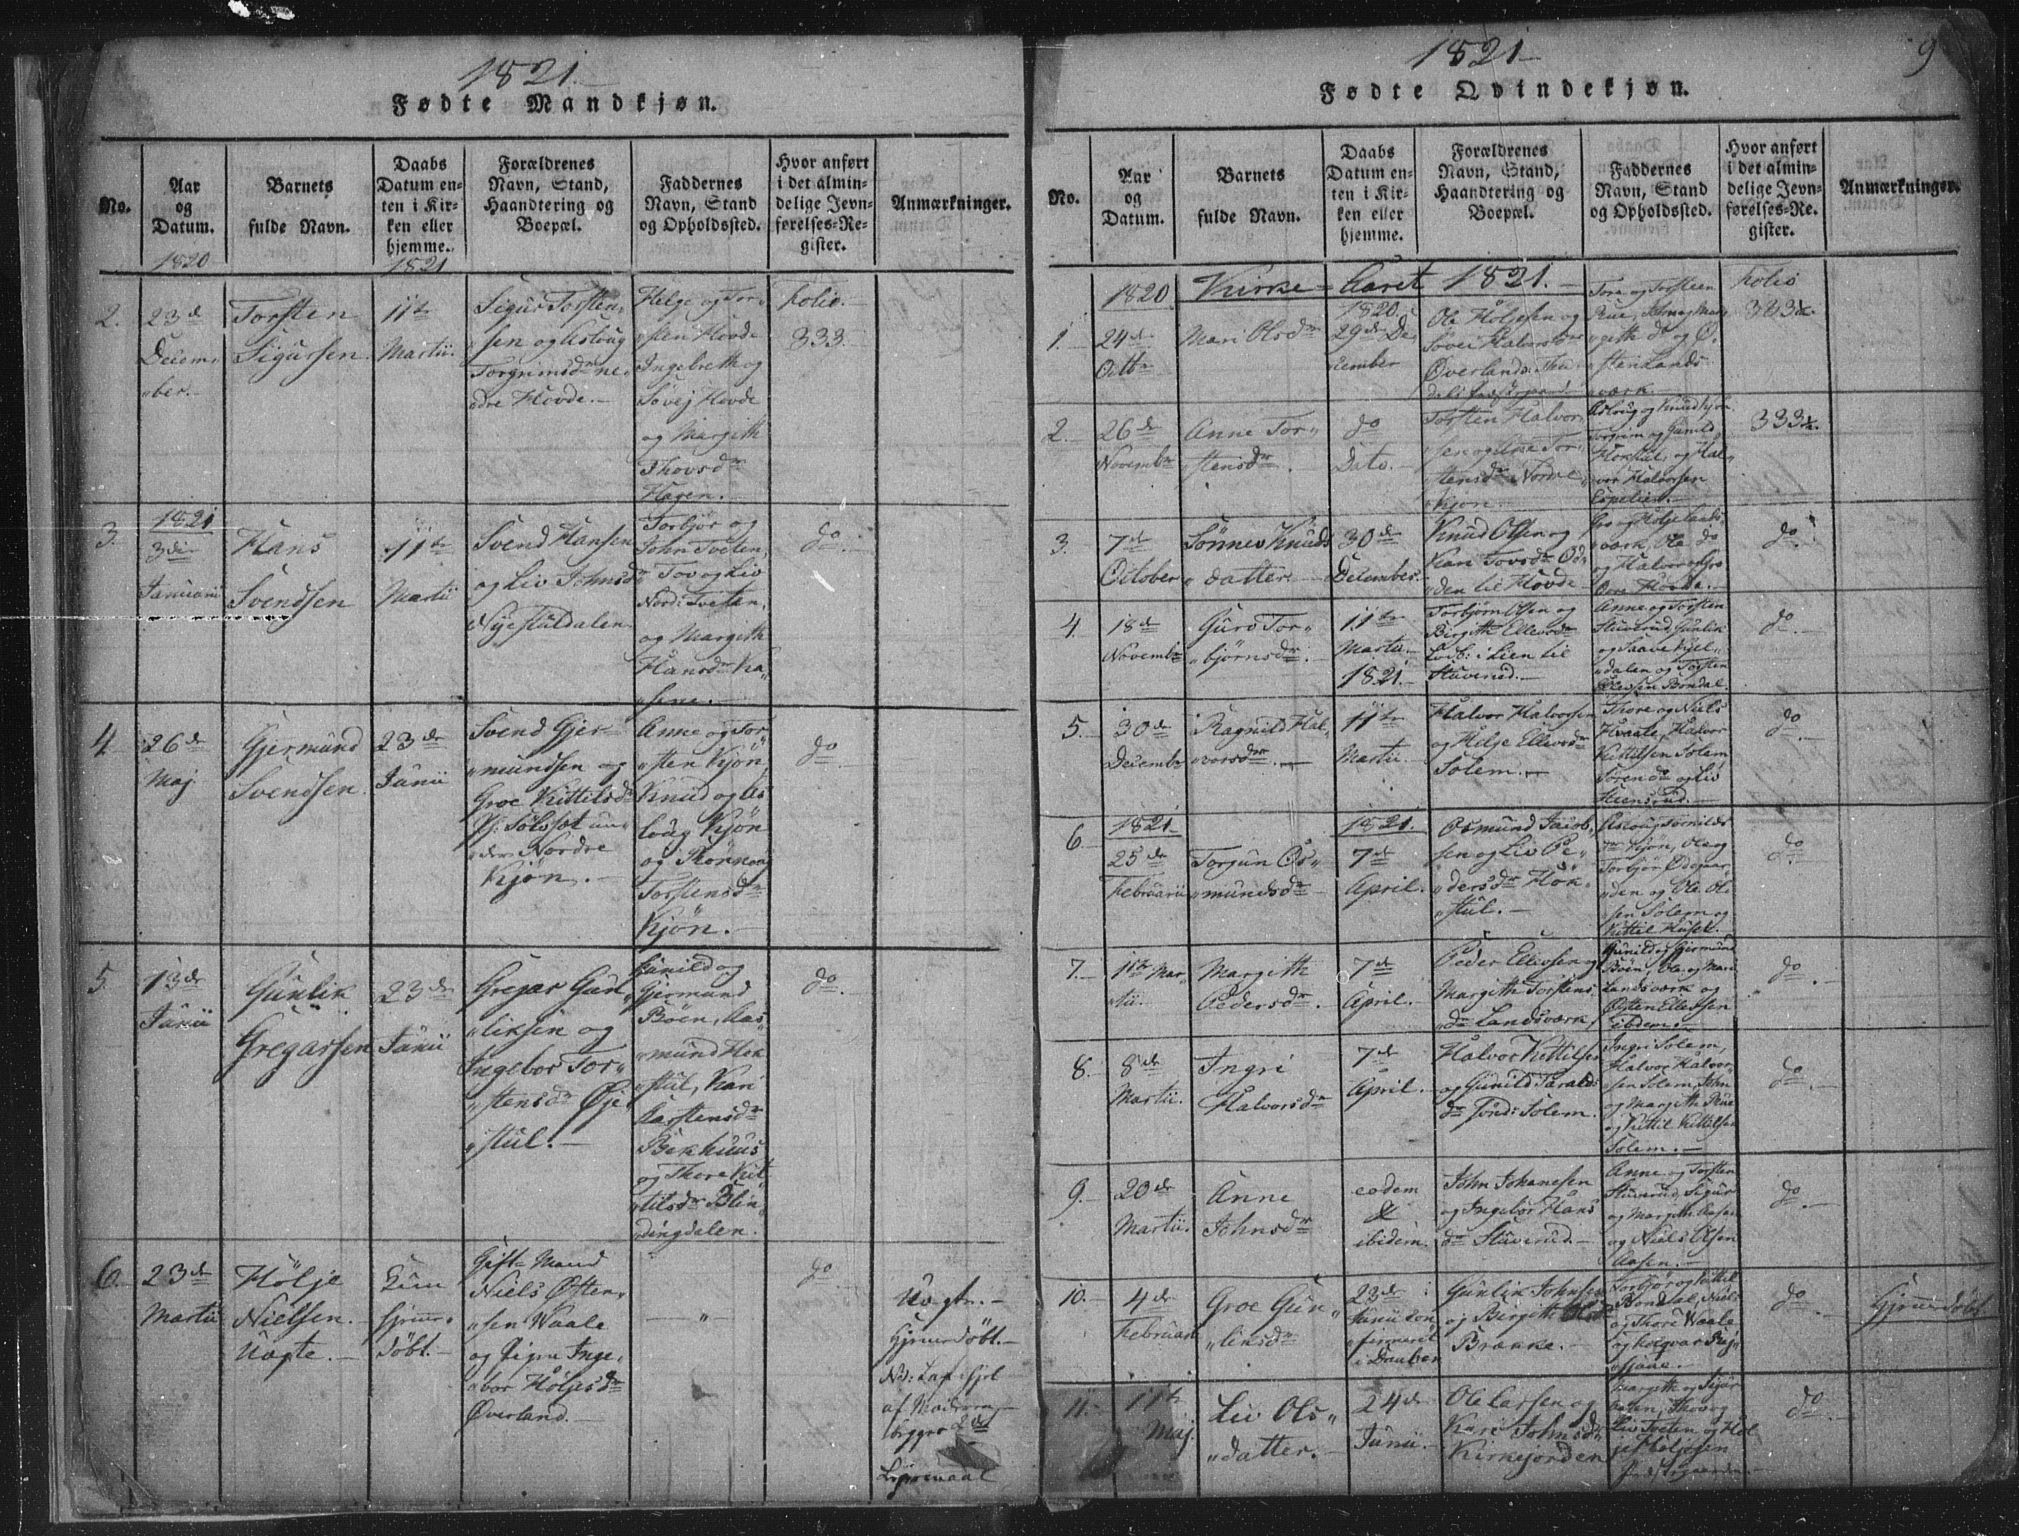 1821.
Fødte Mandkjøn.
No.
Aar
og
Datum.
Barnets
fulde Navn.
Daabs
Datum en-
ten i Kir-
ken eller
hjemme.
Forældrenes
Navn, Stand,
Haandtering og
Boepæl.
Faddernes
Navn, Stand
og Opholdssted.
Hvor anført
i det almin-
delige Jevn-
førelses-Re-
gister.
Anmærkninger.
1820
1821
2.
23de
Decem-
"ber.
Torsten
Sigursen.
11te
Martii.
Sigur Torsten-
"sen og Asloug
Torgrimsdr ne-
"dre Hovde.
Helge og Tor-
"sten Hovde
Ingebreth og
Sovej Hovde
og Margith
Thovsdr
Hagen.
folio.
333.
3.
1821
3die
Januarii
Hans
Svendsen
11te
Martii
Svend Hansen
og Liv Johnsdr
Nyestuldalen.
Torbjør og
John Tveten,
Tov og Liv
Nord: Tveten,
og Margith
Hansdr Ka-
"sene.
do.
4.
26de
Maj
Gjermund
Svendsen.
23de
Junii
Svend Gjer-
"mundsen og
Groe Kittilsdr
Pl: Solsset un-
"der Nordre
Kjøn.
Anne og Tor-
"sten Kjøn
Knud og As-
loug Kjøn
og Rønnoug
Torstensdr
Kjøn.
do
5.
13de
Junii
Gunlik
Gregarsen
23de
Junii
Gregar Gun-
"liksen og
Ingebor Tor-
"stensdr Øje-
"stul.
Gunild og
Gjermund
Bøen, Aas-
"mund Hok-
"stul, Kari
Karstensdr
Bekhuus
og Thore Kit-
"tilsdr Blin-
"dingdalen.
do.
6.
23de
Martii
Hølje
Nielsen.
Uægte.
Kun
hjemme-
døbt.
Gift Mand
Niels Østen-
"sen Waale
og Pigen Inge-
"bor Høljesdr
Øverland.
"
do
Uægte.
Hjemmedøbt.
af Moderen
Lejermaal
1821
9
Fødte Qvindekjøn.
No.
Aar
og
Datum.
Barnets
fulde Navn.
Daabs
Datum en-
ten i Kir-
ken eller
hjemme.
Forældrenes
Navn, Stand,
Haandtering og
Boepæl.
Faddernes
Navn, Stand
og Opholdssted.
Hvor anført
i det almin-
delige Jevn-
førelses-Re-
gister.
Anmærkninger.
1820
Kirke-Aaret 1821.
1.
24de
Octbr
Mari Olsdr
1820.
29de De-
"cember
Ole Høljesen og
Sovei Halvorsdr
Øverlands:
Tore og Torsteen
Rue, John og Mar-
"gith do og Ø-
"sten Lands-
"værk
Folio
333
2.
26de
Novembr
Anne Tor-
"stensdr.
do
Dato.
Torsten Halvor-
"sen og Anne Tor-
"stensdr Nordre
Kjøn
Asloug og Knud Kjøn
Torgrim og Gunild
Hokstul, og Hal-
"vor Halvorsen
Espelien.
333
3.
7de
October
Sønnev Knuds
"datter
30de
December.
Knud Olsen og
Kari Tovsdr Od-
"den til Hovde
Gro og Helje Lands-
"værk, Ole do
og Halvor og Gro
Øvre Hovde.
do.
4.
18de
Novembr
Guro Tor-
"bjørnsdr.
11te
Martii.
1821.
Torbjørn Olsen og
Birgith Ellevsdr
Losb: i Lien til
Stuverud.
Anne og Torsten
Stuverud, Gunlik
og Saave Kjel-
"dalen og Torsten
Ellevsen Bondal.
do.
5.
30de
Decembr
Ragnild Hal-
"vorsdr.
11te
Martii.
Halvor Halvorsen
og Helje Ellevsdr
Solem.
Thore og Niels
Hvaale, Halvor
Kittilsen Solem
Søren do og Liv
Steensrud.
do.
6.
1821
25de
Februarii
Torgun Os-
"mundsdr
1821.
7de
April.
Osmund Jacob-
"sen og Liv Pe-
"dersdr Hok-
"stul.
Asloug Tovnilds
dr Kjøn, Ole og
Torbjør Ødegaar-
"den og Ole Ol-
"sen Solem og
Kittil Husen.
do.
7.
11te Mar-
"tii.
Margith
Pedersdr
7de
April.
Peder Ellevsen og
Margith Torstens-
"dr Landsværk,
Gunild og Gjermund
Bøen, Ole og Mari
Landsværk og
Østen Ellefsen
ibidem.
do.
8.
8de
Martii.
Ingri
Halvorsdr
7de
April.
Halvor Kittilsen
og Gunild Taralds
dr Sønd: Solem.
Ingri Solem,
Halvor Halvor-
"sen Solem, John
og Margith Rue
og Kittil Kittilsen
Solem.
do.
9.
20de
Martii.
Anne
Johnsdr
eodem
&
ibidem.
John Johanesen
og Ingebor Hans
dr Stuverud.
Anne og Torsten
Stuverud, Sigur
og Margith Aasen
og Niels Olsen
Aasen.
do.
10.
4de
Februarii
Groe Gun-
"liksdr
23de
Junii con-
"firmeret
i Daaben
Gunlik Johnsen
og Birgith Olsdr
Brække.
Torbjør og Kittil
Bondal, Niels
og Thore Waale
do.
Hjemmedøbt
11.
11te
Maj.
Liv Ols-
"datter.
24de
Junii.
Ole Larsen og
Kari Johnsdr
Kirkejorden
Margith og Sigur
Aasen, Thov og
Liv Tveten og Hel-
je Høljesen
do.